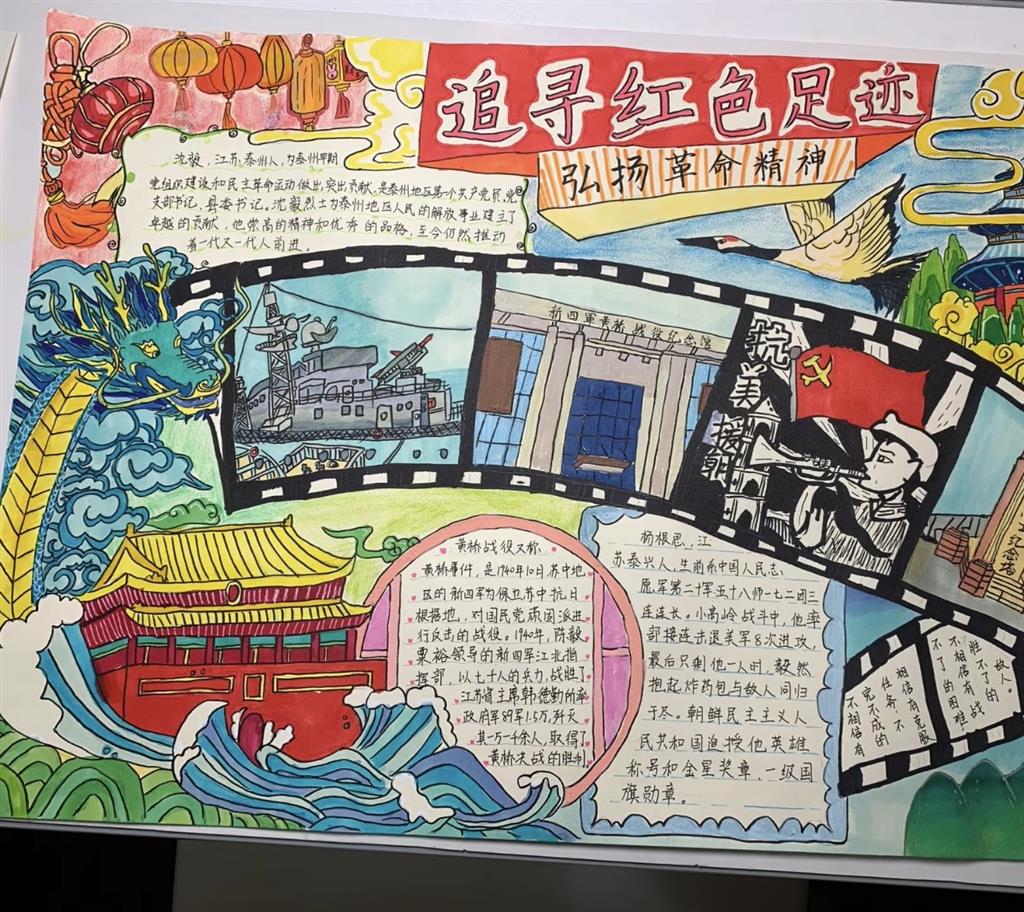 追寻红色足迹
弘扬革命精神
沈毅，江苏泰州人，为泰州早期
党组织建设和民主革命运动做出突出贡献，是泰州地区第一个共产党员、党
支部书记、县委书记。沈毅烈士为泰州地区人民的解放事业建立了
卓越的贡献，他崇高的精神和优秀的品格，至今仍然推动
着一代又一代人前进
新四軍黄桥战役纪念馆
抗美援朝
黄桥战役又称
黄桥事件，是1940年10日苏中地
区的新四军为保卫苏中抗日
根据地，对国民党顽固派进
行反击的战役。1940年，陈毅
粟裕领导的新四军江北指
挥部，以七千人的兵力，战胜了
江苏省主席韩德勤所率
政府军89军1.5万，歼灭
其一万一千余人，取得了
黄桥决战的胜利
杨根思，江
苏泰兴人，生前系中国人民志
愿军第二十军五十八师一七二团三
连连长，小高岭战斗中，他率
部接连击退美军8次进攻，
最后只剩他一人时，毅然
抱起炸药包与敌人同归
于尽。朝鲜民主主义人
民共和国追授他英雄
称号和金星奖章、一级国
旗勋章。
纪念塔
不相信有
完不成的
任务，不
相信有克服
不了的困难
不相信有战
胜不了的
敌人。